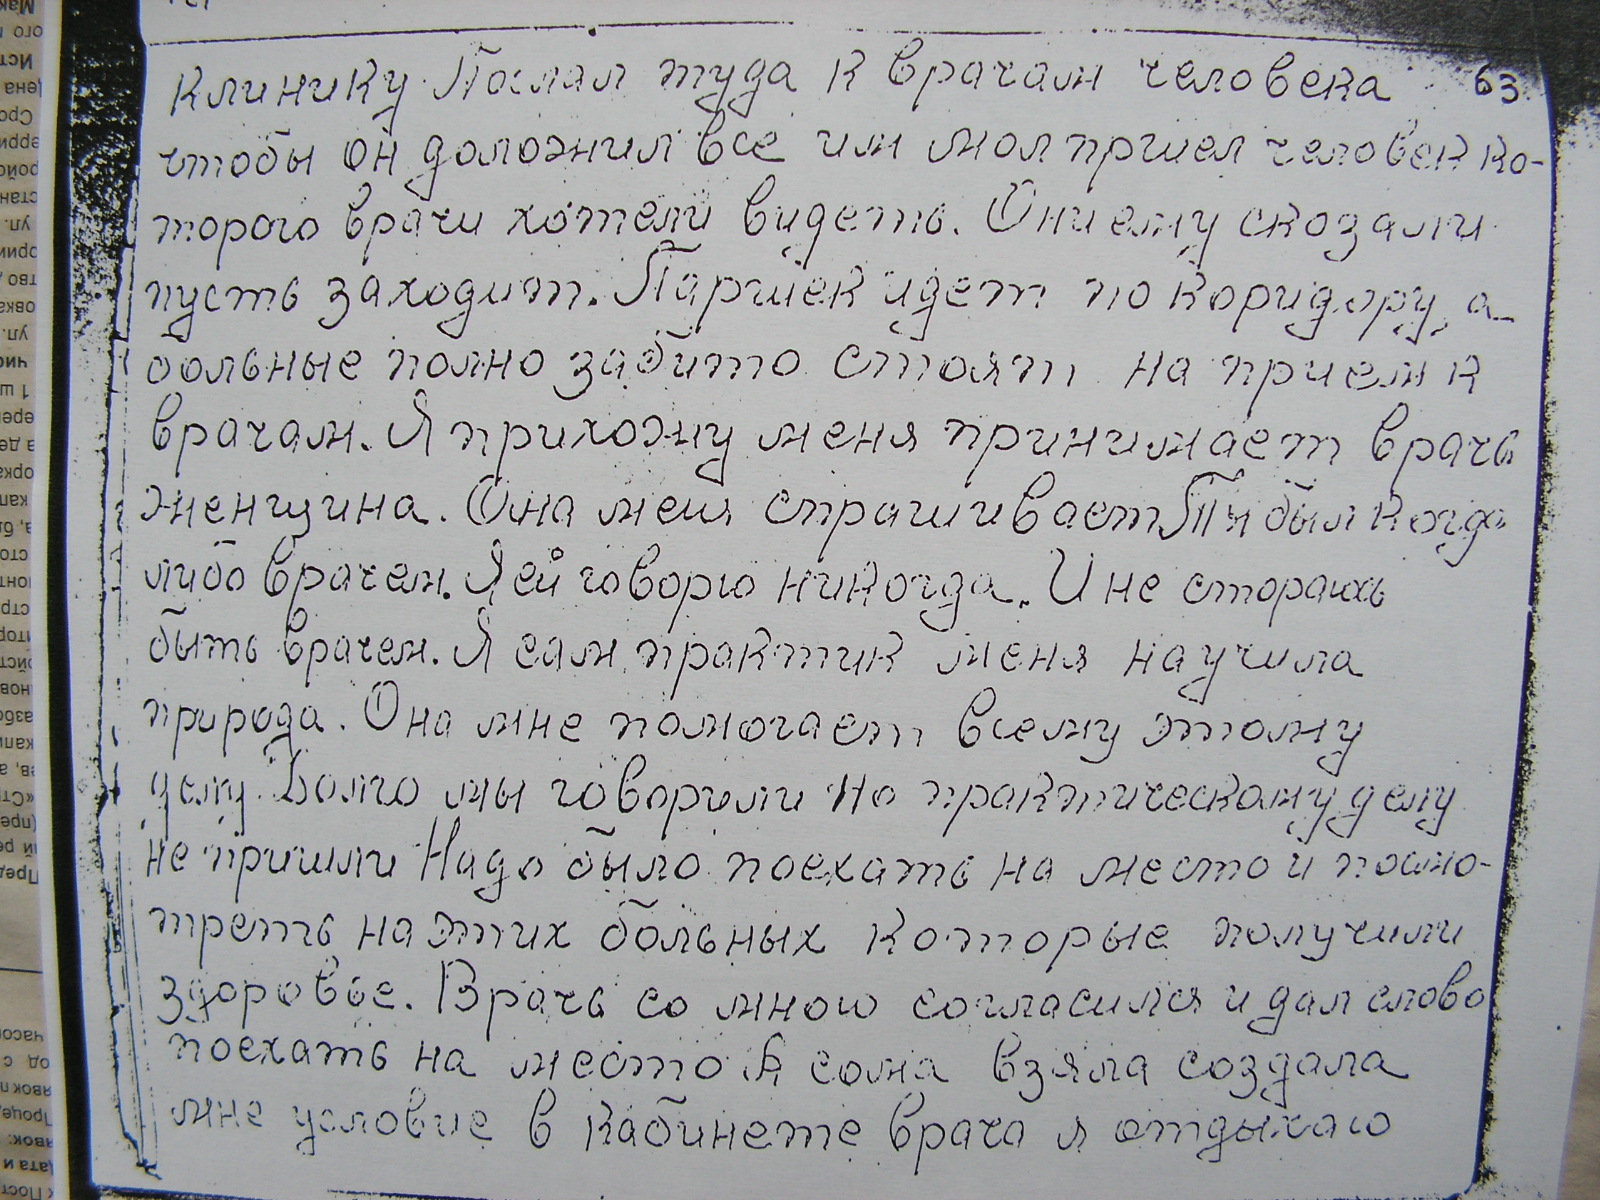 63
клинику. Послал туда к врачам человека
чтобы он доложил все им мол пришел человек ко-
торого врачи хотели видеть. Они ему скозали
пусть заходит. Паршек идет по коридору, а
больные полно забито стоят на прием к
врачам. Я прихожу меня принимает врачь
женщина. Она меня спрашивает Ты был когда
либо врачем. Я ей говорю никогда. И не стораюсь
быть врачем. Я сам практик меня научила
природа. Она мне помогает всему этому
делу. Долго мы говорили но практическому делу
не пришли Надо было поехать на место и посмо-
треть на этих больных которые получили
здоровье. Врачь со мною согласился и дал слово
поехать на место А сома взяла создала
мне условие в кабинете врача я отдыхаю